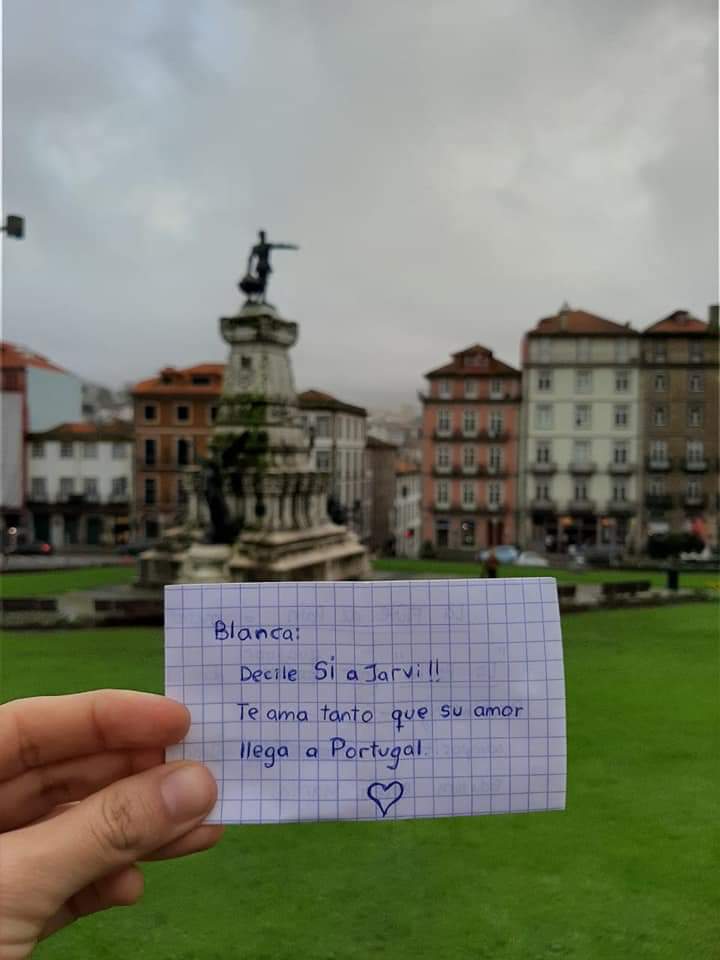 Blanca:
Decile Si a Jarvi!!
Te ama tanto que su amor
llega a Portugal.